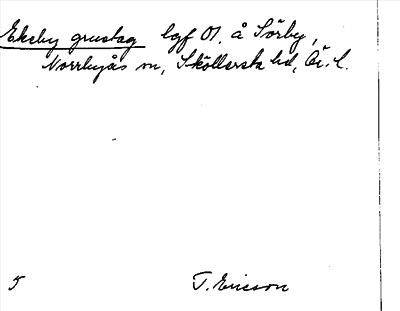 Eksby grustag lgf Ol. å Sörby,
Norrbyås sn, Sköllersta hd, Ör. l.
5 T. Ericson